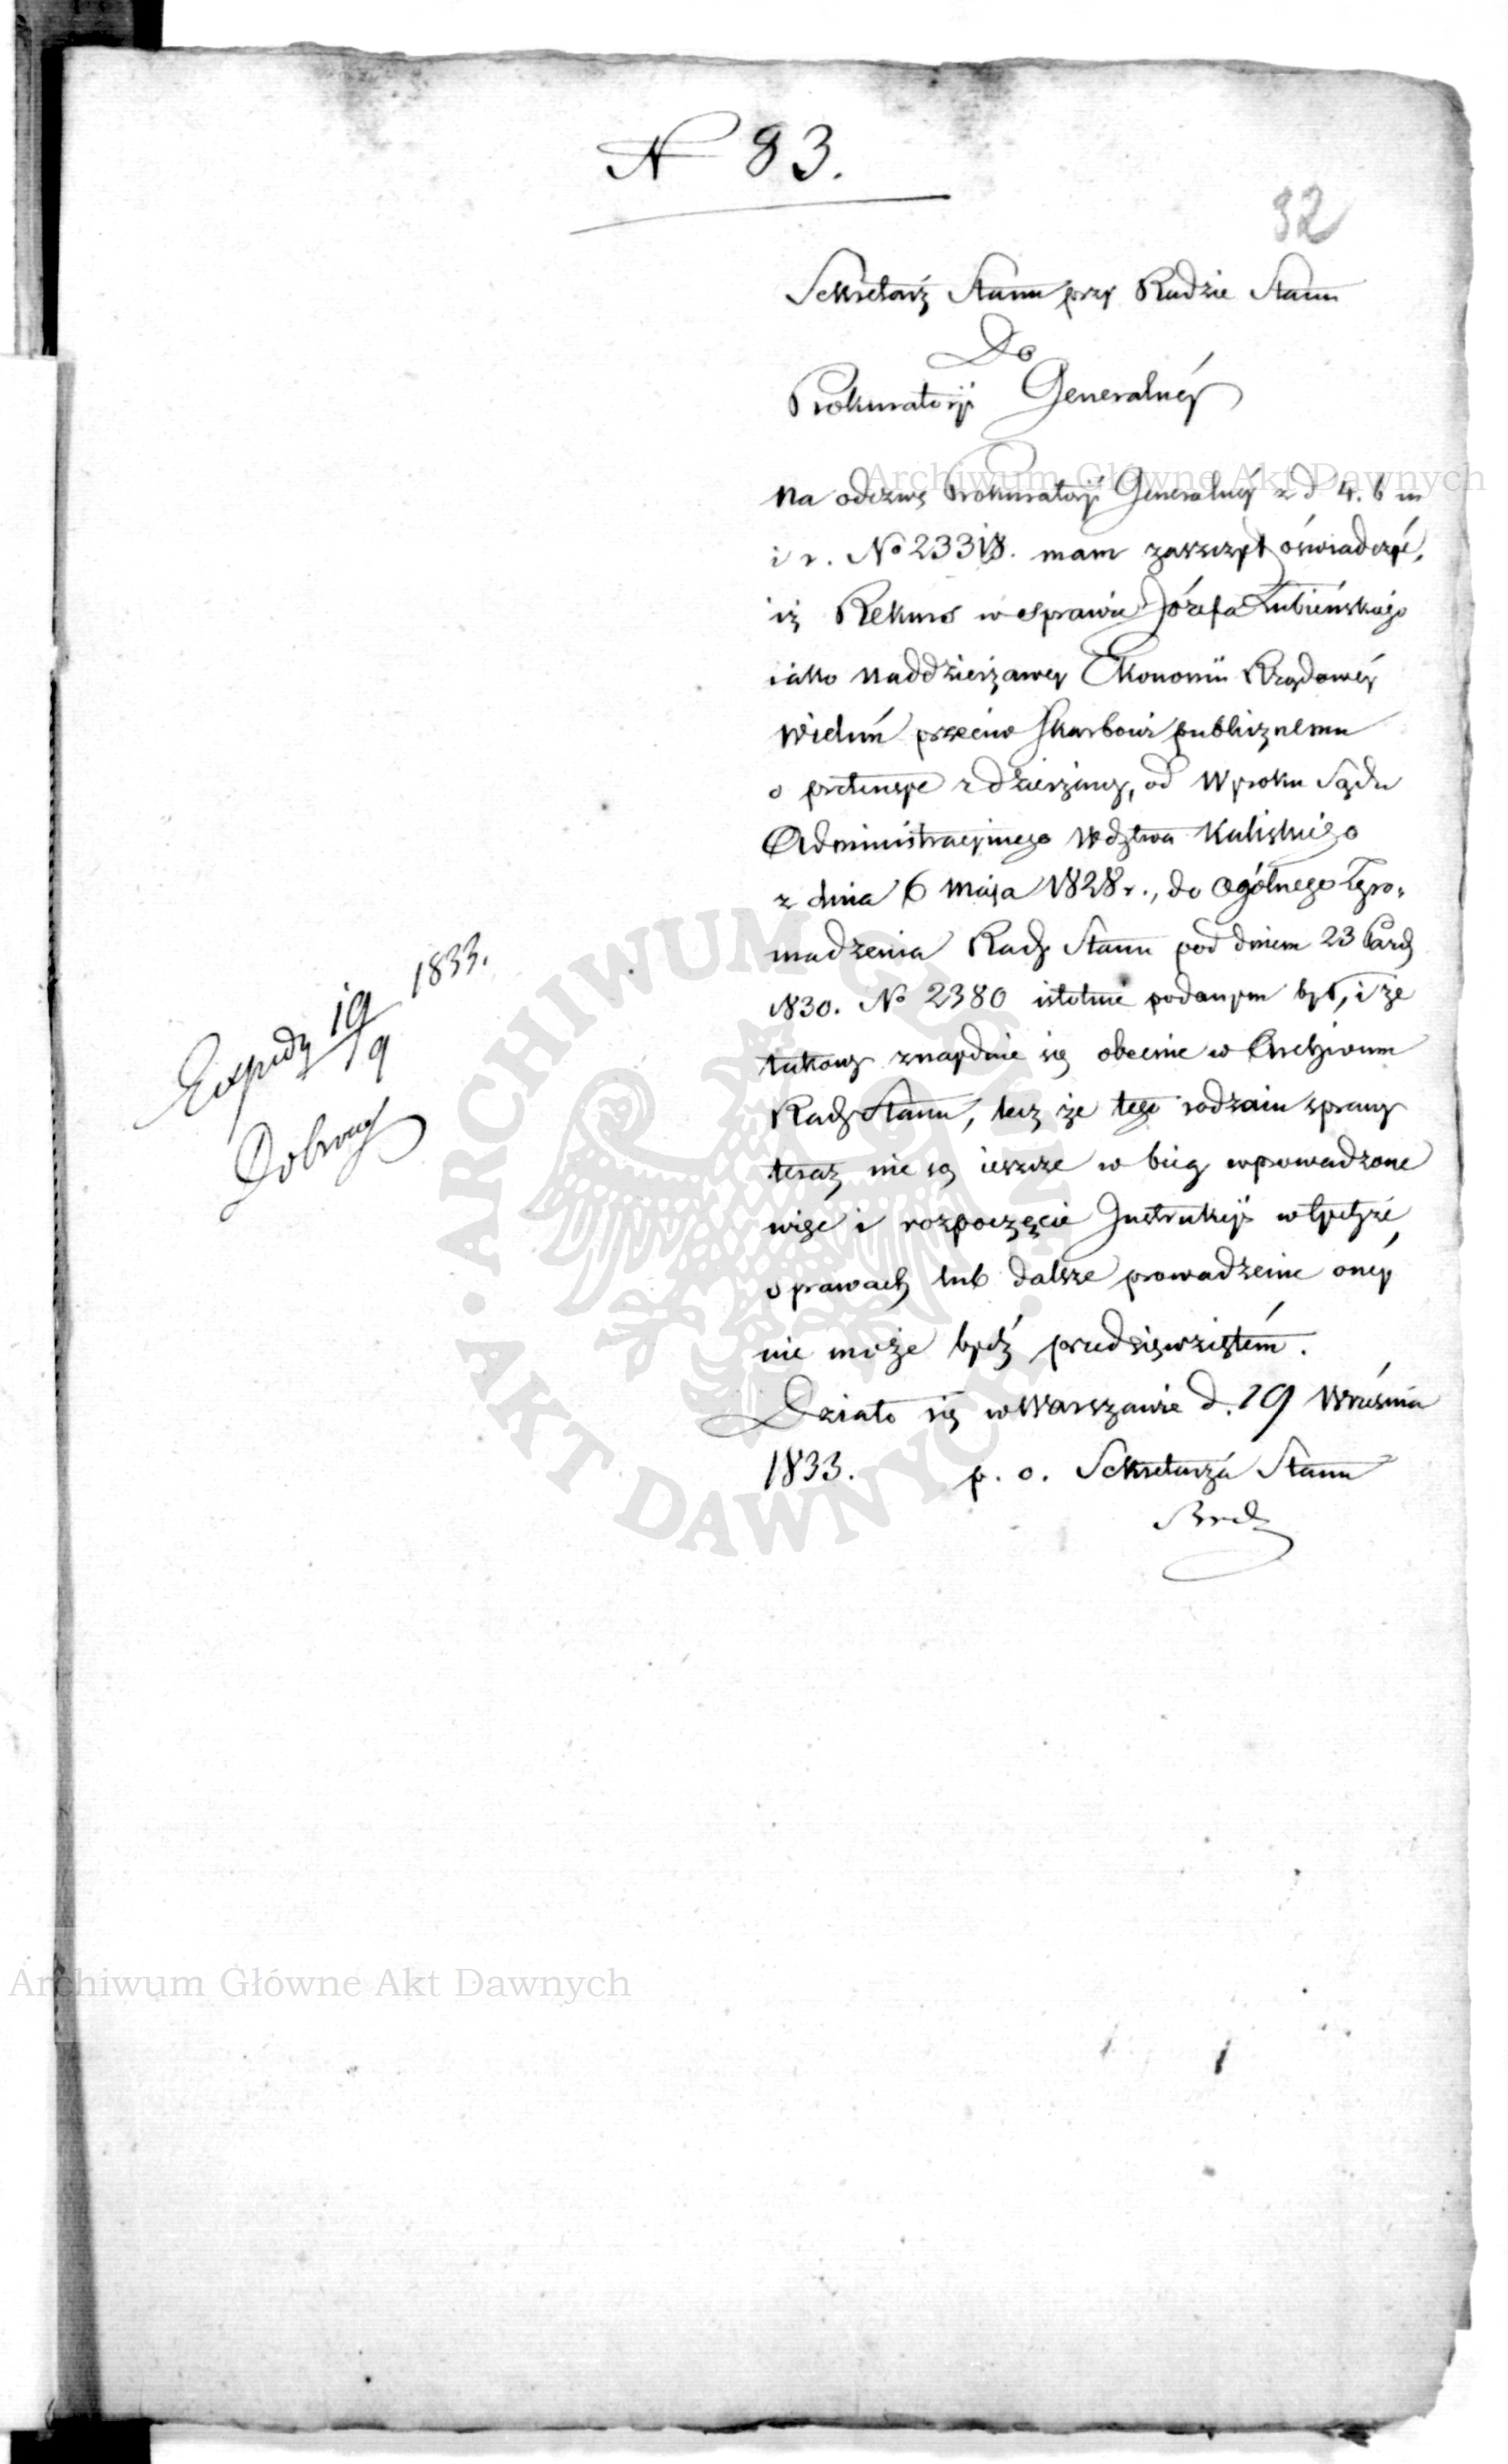 N 83.
32
Sekretarz Stanu przy Radzie Stanu
Do
Prokuratoryi Generalnéy
Archiwum Główne Akt Dawnych
Na odezwę Prokuratoryi Generalnéy z d 4. b m
i r. No 23318. mam zaszczyt oświadczyć,
iż Rekurs w sprawie Józefa Łubieńskiego
iako Naddzierżawcy Ekonomii Rządowéy
Wieluń przeciw Skarbowi publicznemu
o pretensye z dzierżawy, od Wyroku Sądu
Administracyjnego Wdztwa Kaliskiego
z dnia 6 Maja 1828 r., do Ogólnego Zgro-
madzenia Rady Stanu pod dniem 23
1830. No 2380 istotnie podanym był, i że
takowy znayduie się obecnie w Archiwum
Rady Stanu, lecz że tego rodzaiu sprawy
teraz nie są ieszcze w bieg wprowadzone
więc i rozpoczęcie Instrukcyi w tychże
sprawach lub dalsze prowadzenie onéy
nie może bydź przedsięwziętém.
Działo się w Warszawie d. 19 Września
1833. p. o. Sekretarza Stanu
Expedy 19/9 1833.
ARCHIWUM GŁÓWNE
AKT DAWNYCH
Archiwum Główne Akt Dawnych